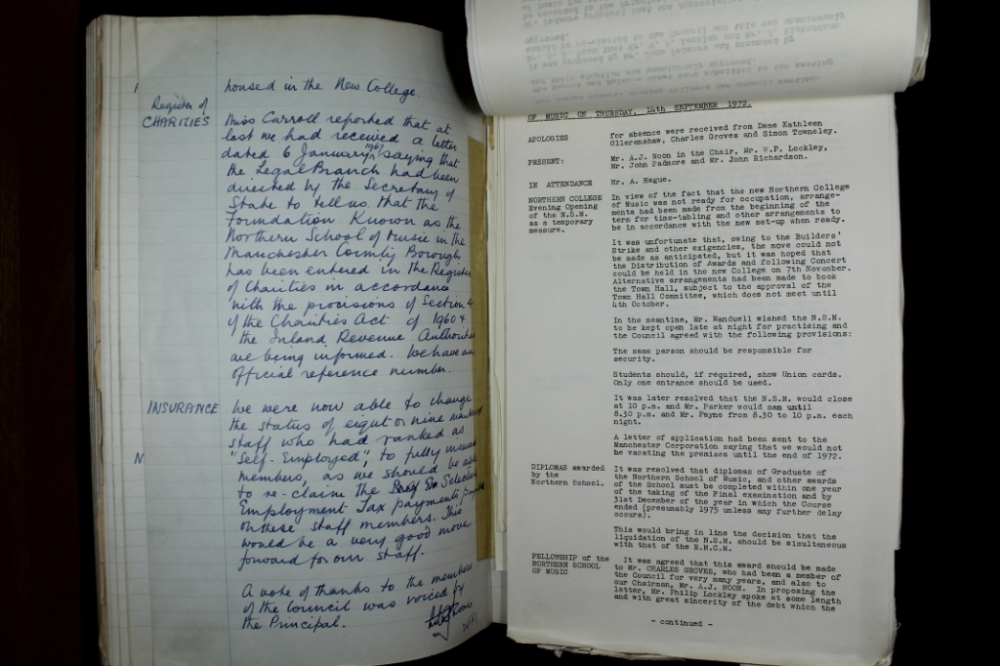 housed in the New College.
Register of
CHARITIES
Miss Carroll reported that at
last we had received a letter
dated 6 January 1967 saying that
the Legal Branch had been
directed by the Secretary of
State to tell us that the
Foundation Known as the
Northern School of Music in the
Manchester County Borough
has been entered in the Register
of Charities in accordance
with the provisions of Section 4
of the Charities Act of 1960 &
the Inland Revenue Authorities
are being informed. We have an
official reference number.
INSURANCE
We were now able to change
the status of eight or nine
staff who had ranked as
"Self-Employed", to fully insured
members, as we should be able
to re-claim the Selective
Employment Tax payments
on these staff members. This
would be a very good move
forward for our staff.
A vote of thanks to the members
of the Council was voiced by
the Principal.
OF MUSIC ON THURSDAY, 14th SEPTEMBER 1972.
APOLOGIES
for absence were received from Dame Kathleen
Ollerenshaw, Charles Groves and Simon Towneley.
PRESENT:
Mr. A.J. Noon in the Chair, Mr. W.P. Lockley,
Mr. John Padmore and Mr. John Richardson.
IN ATTENDANCE
Mr. A. Hague.
NORTHERN COLLEGE
Evening Opening
of the N.S.M.
as a temporary
measure.
In view of the fact that the new Northern College
of Music was not ready for occupation, arrange-
ments had been made from the beginning of the
term for time-tabling and other arrangements to
be in accordance with the new set-up when ready.
It was unfortunate that, owing to the Builders'
Strike and other exigencies, the move could not
be made as anticipated, but it was hoped that
the Distribution of Awards and following Concert
could be held in the new College on 7th November.
Alternative arrangements had been made to book
the Town Hall, subject to the approval of the
Town Hall Committee, which does not meet until
4th October.
In the meantime, Mr. Manduell wished the N.S.M.
to be kept open late at night for practising and
the Council agreed with the following provisions:
The same person should be responsible for
security.
Students should, if required, show Union cards.
Only one entrance should be used.
It was later resolved that the N.S.M. would close
at 10 p.m. and Mr. Parker would man until
8.30 p.m. and Mr. Payne from 8.30 to 10 p.m. each
night.
A letter of application had been sent to the
Manchester Corporation saying that we would not
be vacating the premises until the end of 1972.
DIPLOMAS awarded
by the
Northern School.
It was resolved that diplomas of Graduate of
the Northern School of Music, and other awards
of the School must be completed within one year
of the taking of the Final examination and by
31st December of the year in which the Course
ended (presumably 1975 unless any further delay
occurs).
This would bring in line the decision that the
liquidation of the N.S.M. should be simultaneous
with that of the R.M.C.M.
FELLOWSHIP of the
NORTHERN SCHOOL
OF MUSIC
It was agreed that this award should be made
to Mr. CHARLES GROVES, who had been a member of
the Council for very many years, and also to
our Chairman, Mr. A.J. NOON. In proposing the
latter, Mr. Philip Lockley spoke at some length
and with great sincerity of the debt which the
- continued -